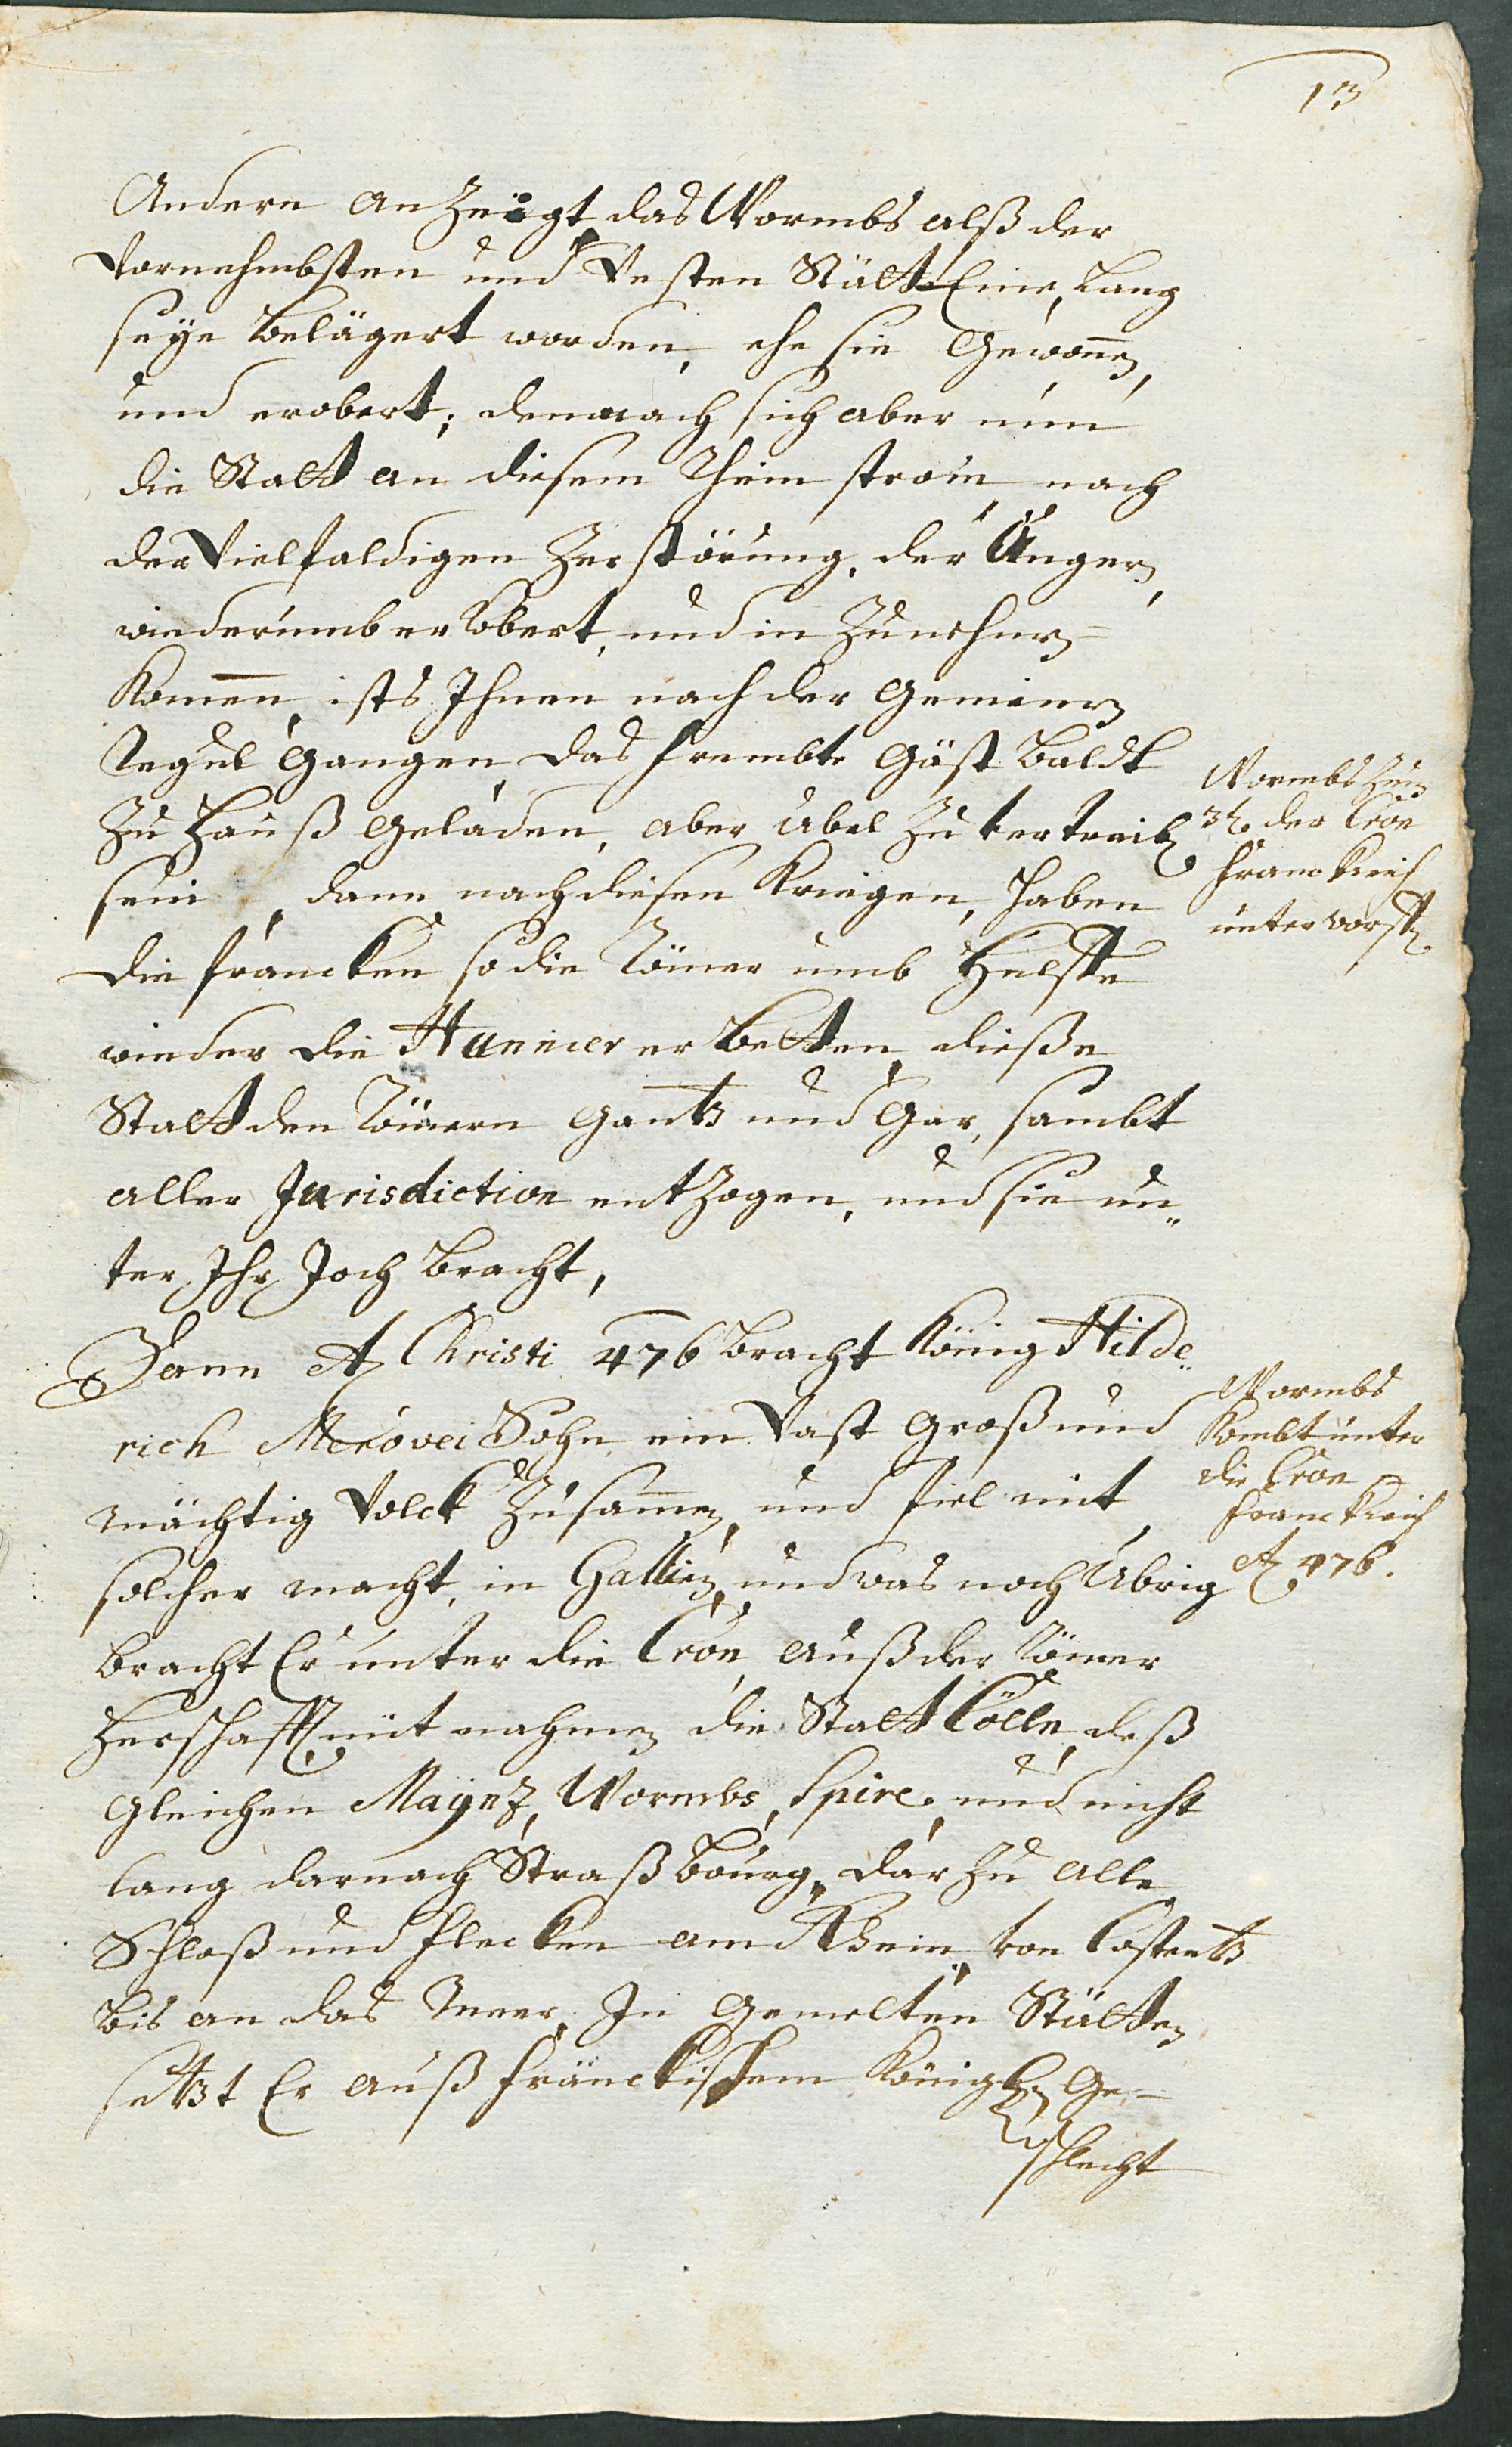 13
Andern anZeigt, das Wormbs alß der
Vornehmbsten und Vesten Stätt Eine, Lang
seye Belägert worden, ehe sie Gewonnen,
und erobert; demnach sich aber nun
die Statt an diesem Rhein strom, nach
der Vielfaldigen Zerstörung, der Unger,
wiederumb erhobert, und in Zunehmen=
Kommen, ists Ihnen nach der Gemeinen
Regul Gangen, das frembte Gäst Baldt
Zu Hauß Geladen, aber übel Zu vertreiben
sein, dann nach diesen Kriegen, haben
die francken so die Römer umb Hülffe
wieder die Hunnier erBetten, dieße
Statt den Römern Gantz und Gar, sambt
aller Jurisdiction entZogen, und sie un„
ter Ihr Joch Bracht,
Dann Ao Christi 476 Bracht König Hilde„
rich Merovei Sohn ein Vast Groß und
mächtig Volck Zusammen, und fiel mit
solcher macht, in Gallien, und was noch Übrig
Bracht Er unter die Cron, auß der Römer
Herschafft, mit nahmen die Statt Cölln, deß
Gleichen Maynz, Wormbs, Spire, und nicht
lang darnach StraßBourg, dar Zu alle
Schloß und flecken am Rhein, von Costentz
Bis an das Meer, In Gemelten Stätten
setzt Er auß fränckischem Königlichen Ge-
schlecht
Wormbs Zum
der Cron
franckreich
unterworffen.
Wormbs
Kombt unter
die Cron
franckreich
Ao 476.